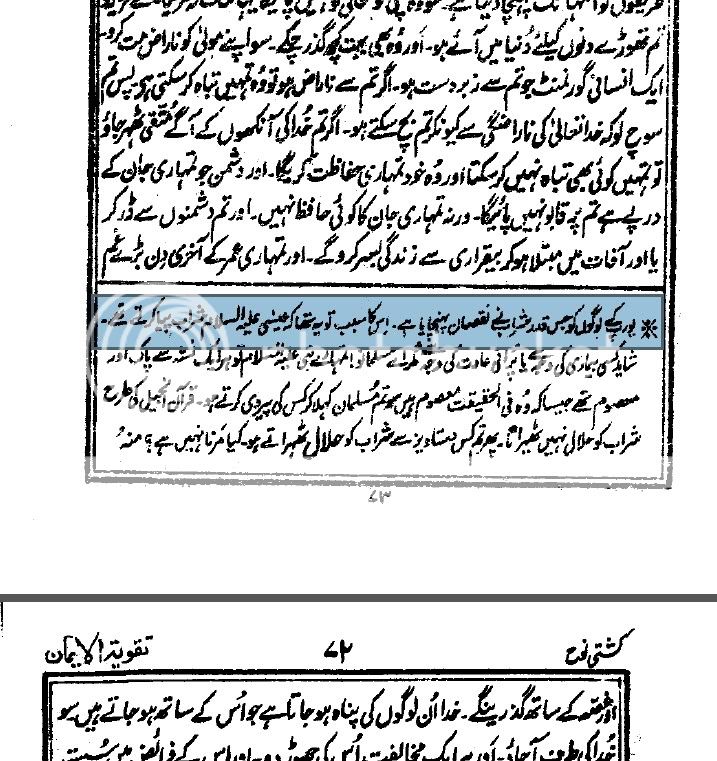 تم تھوڑے دنوں کیلئے دُنیا میں آئے ہو۔ اور وُہ بھی بہت کچھ گذر چکے۔ سو اپنے مولیٰ کو ناراض مت کرو۔
ایک انسانی گورنمنٹ جو تم سے زبردست ہو۔ اگر تم سے ناراض ہو تو وُہ تمہیں تباہ کر سکتی ہے۔ پس تم
سوچ لو کہ خدا تعالیٰ کی ناراضگی سے کیونکر تم بچ سکتے ہو۔ اگر تم خُدا کی آنکھوں کے آگے متقی ٹھہر جاؤ
تو تمہیں کوئی بھی تباہ نہیں کر سکتا اور وُہ خود تمہاری حفاظت کریگا۔ اور دشمن جو تمہاری جان کے
درپے ہے تم پر قابو نہیں پائیگا۔ ورنہ تمہاری جان کا کوئی حافظ نہیں۔ اور تم دشمنوں سے ڈر کر
یا اور آفات میں مبتلا ہو کر بیقراری سے زندگی بسر کرو گے۔ اور تمہاری عمر کے آخری دن بڑے غم
※ یورپ کے لوگوں کو جس قدر شراب نے نقصان پہنچایا ہے۔ اس کا سبب تو یہ تھا کہ عیسیٰ علیہ السلام شراب پیا کرتے تھے۔
شاید کسی بیماری کی وجہ سے یا پرانی عادت کی وجہ سے مگر اے مسلمانو! تمہارے نبی علیہ السلام تو ہر ایک نشہ سے پاک اور
معصوم تھے جیسا کہ وُہ فی الحقیقت معصوم ہیں سو تم مُسلمان کہلا کر کس کی پیروی کرتے ہو۔ قرآن انجیل کی طرح
شراب کو حلال نہیں ٹھہراتا۔ پھر تم کس دستاویز سے شراب کو حلال ٹھہراتے ہو۔ کیا مرنا نہیں ہے؟ منہ
۷۳
کشتی نوح
۷۴
تقویۃ الایمان
اور غصّہ کے ساتھ گذرینگے۔ خدا اُن لوگوں کی پناہ ہو جاتا ہے جو اُس کے ساتھ ہو جاتے ہیں۔ سو